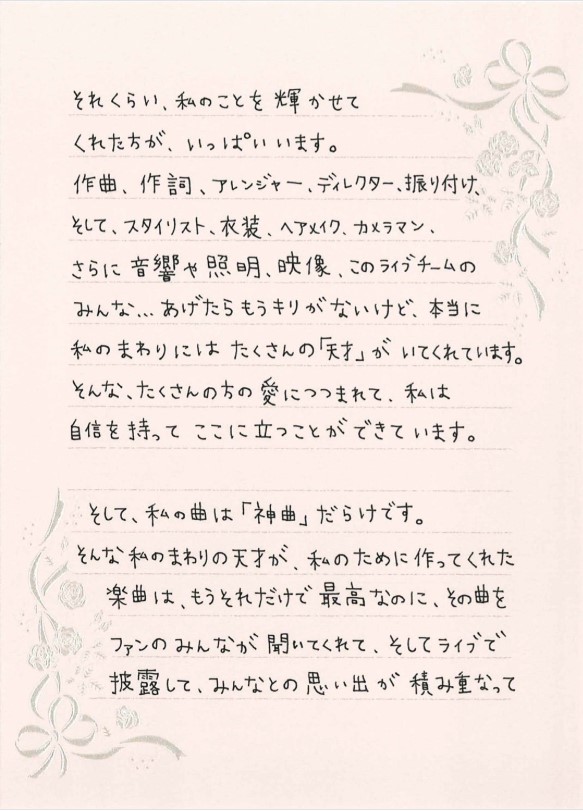 それくらい、私のことを輝かせて
くれた方が、いっぱいいます。
作曲、作詞、アレンジャー、ディレクター、振り付け、
そして、スタイリスト、衣装、ヘアメイク、カメラマン、
さらに音響や照明、映像、このライブチームの
みんな...あげたらもうキリがないけど、本当に
私のまわりにはたくさんの「天才」がいてくれています。
そんな、たくさんの方の愛につつまれて、私は
自信を持ってここに立つことができています。
そして、私の曲は「神曲」だらけです。
そんな私のまわりの天才が、私のために作ってくれた
楽曲は、もうそれだけで最高なのに、その曲を
ファンのみんなが聞いてくれて、そしてライブで
披露して、みんなとの思い出が積み重なって